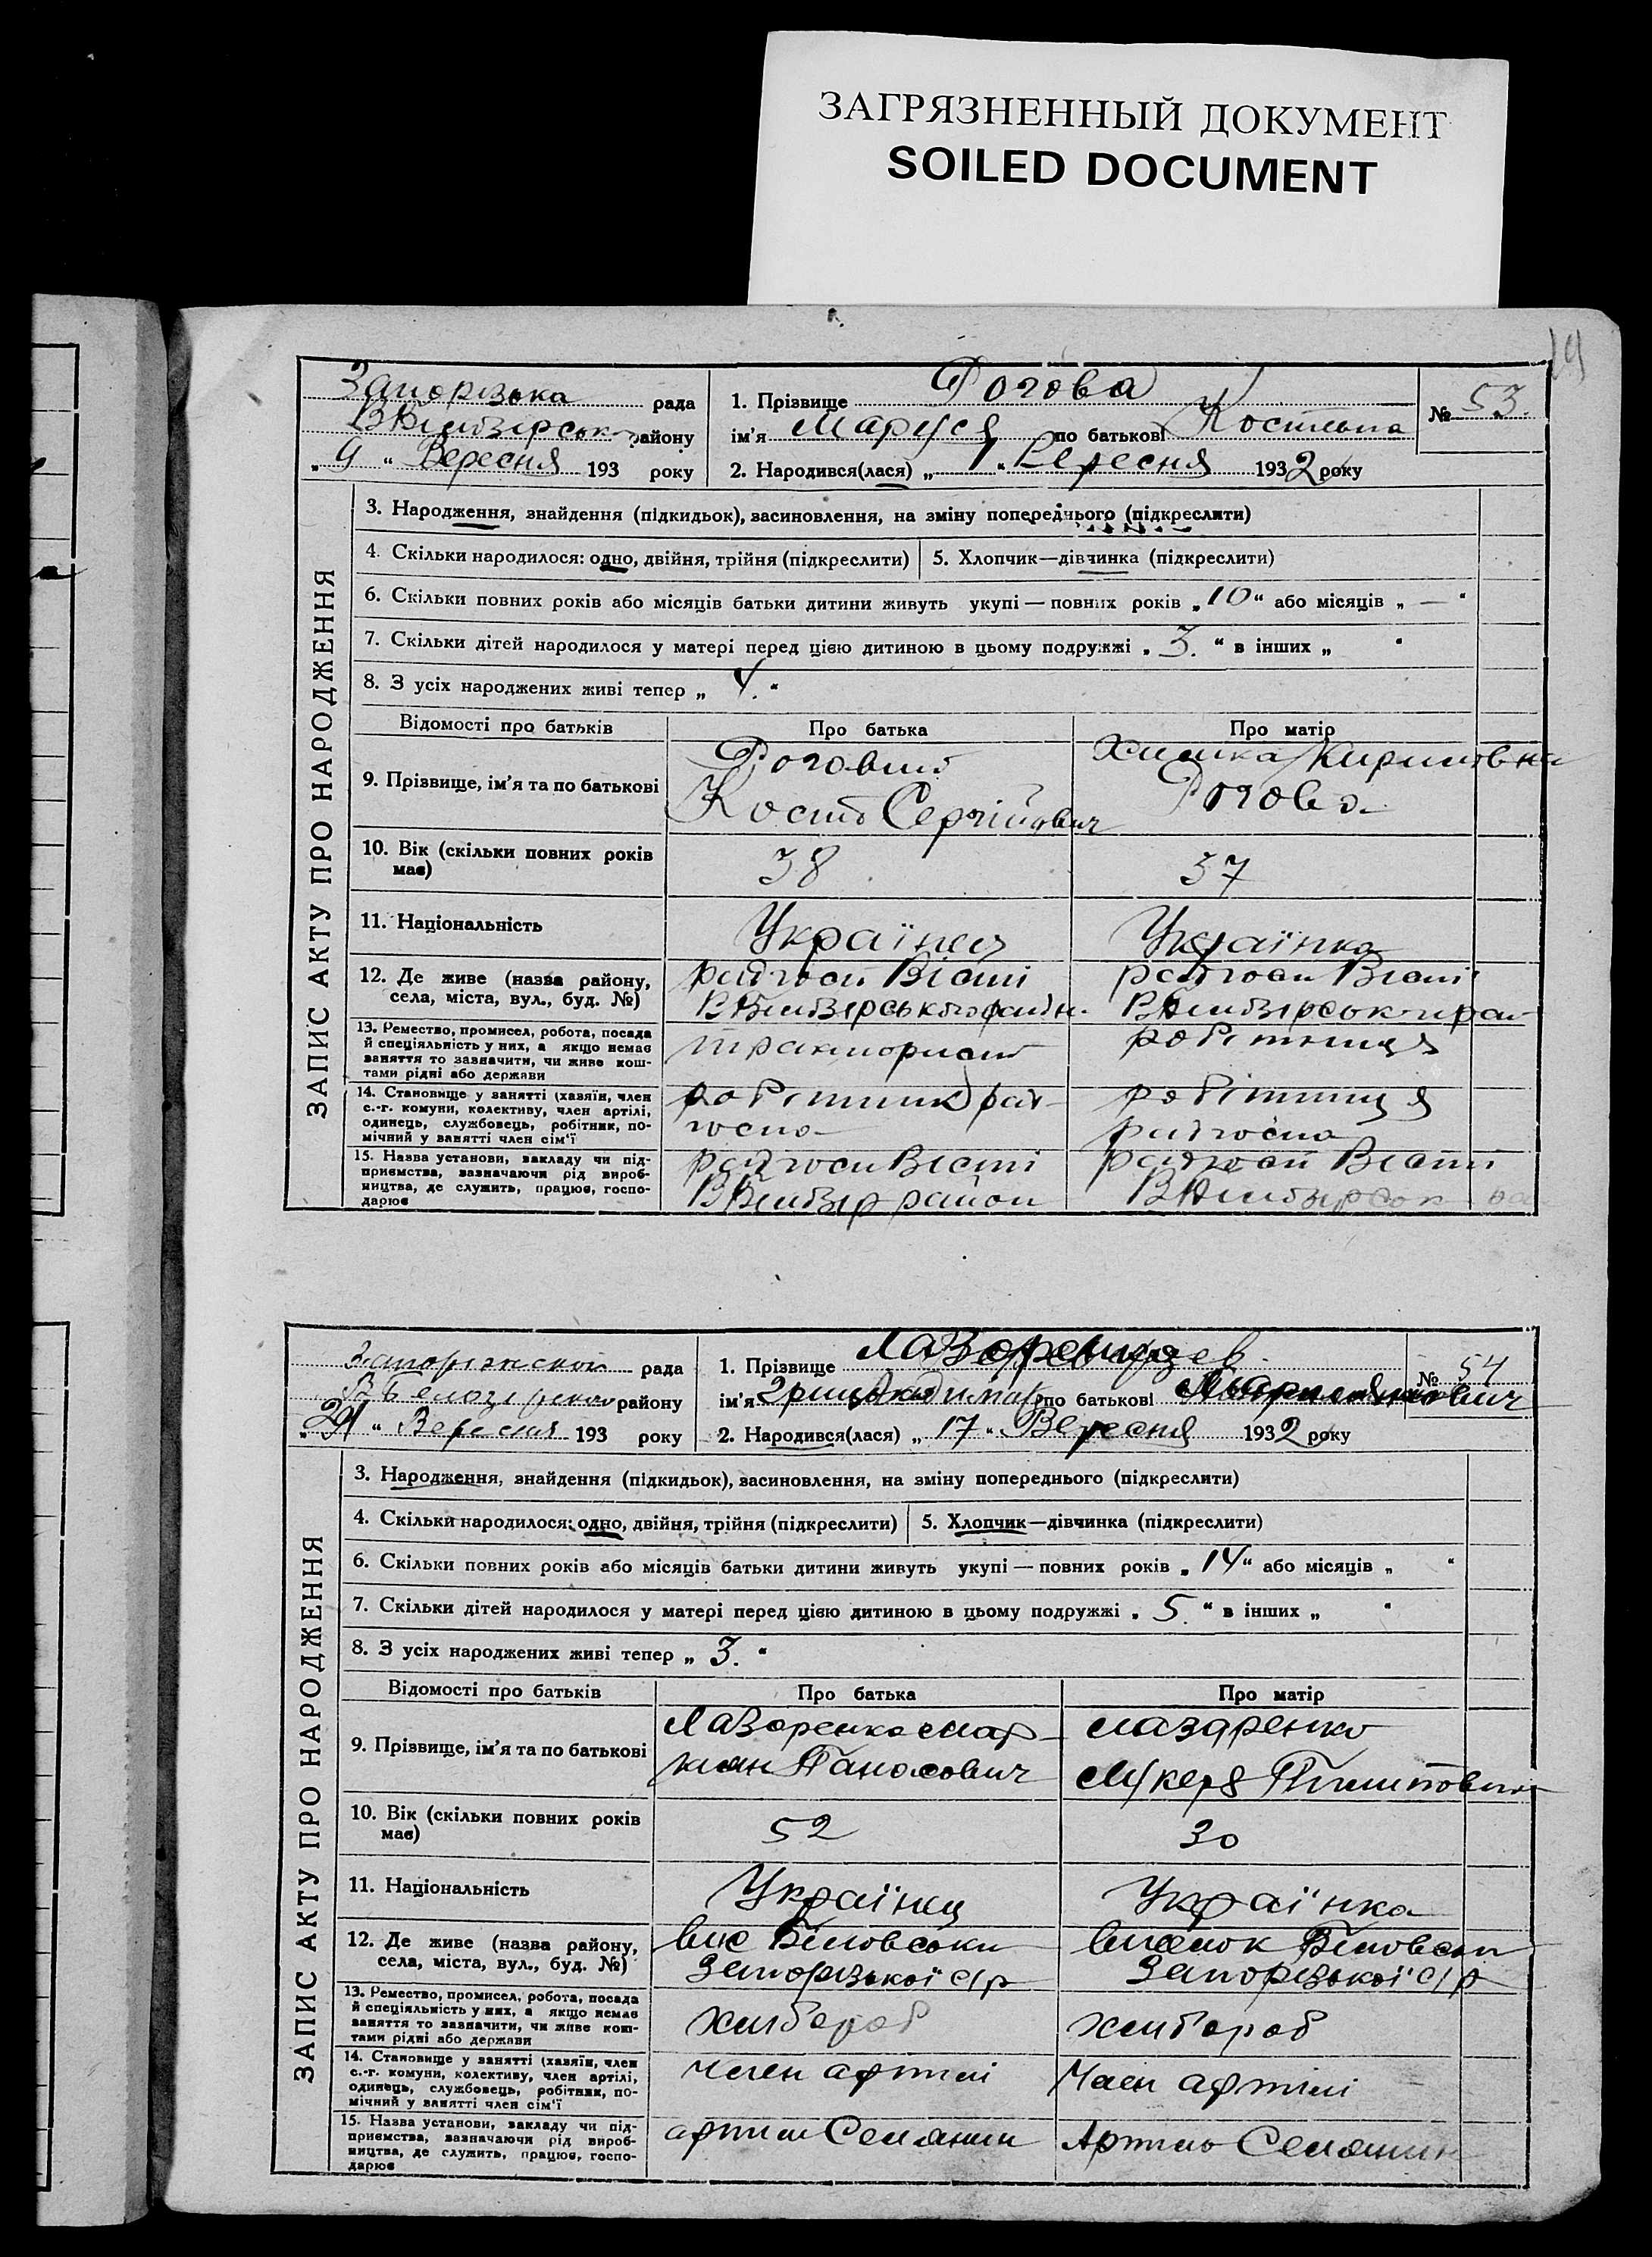 ЗАГРЯЗНЕННЫЙ ДОКУМЕНТ
SOILED DOCUMENT
19
Запорізька рада
району
„ 9 “ Вересня 193 року
1. Прізвище Рогова
ім’я Маруся по батькові
2. Народився(лася) „ 1 “ Вересня 1932 року
№ 53.
ЗАПИС АКТУ ПРО НАРОДЖЕННЯ
3. Народження, знайдення (підкидьок), засиновлення, на зміну попереднього (підкреслити)
4. Скільки народилося: одно, двійня, трійня (підкреслити) 5. Хлопчик—дівчинка (підкреслити)
6. Скільки повних років або місяців батьки дитини живуть укупі — повних років „ 10 “ або місяців „ — “
7. Скільки дітей народилося у матері перед цією дитиною в цьому подружжі „ 3. “ в інших „ “
8. З усіх народжених живі тепер „ 4. “
Відомості про батьків Про батька Про матір
9. Прізвище, ім’я та по батькові
Рогова
Кость Сергійович
10. Вік (скільки повних років має) 38 37
11. Національність Українец Українка
12. Де живе (назва району, села, міста, вул., буд. №)
радгосп Вісті радгосп Вісті
13. Ремество, промисел, робота, посада
й спеціяльність у них, а якщо немає
заняття то зазначити, чи живе кош-
тами рідні або держави
тракторист робітниця
14. Становище у занятті (хазяїн, член
с.-г. комуни, колективу, член артілі,
одинець, службовець, робітник, по-
мічний у занятті член сім’ї
робітник рад- робітниця
госпа радгоспа
15. Назва установи, закладу чи під-
приємства, зазначаючи рід вироб-
ництва, де служить, працює, госпо-
дарює
радгосп Вісті радгосп Вісті
район
рада
району
„ 21 “ Вересня 193 року
1. Прізвище
ім’я по батькові
2. Народився(лася) „ 17 “ Вересня 1932 року
№ 54
ЗАПИС АКТУ ПРО НАРОДЖЕННЯ
3. Народження, знайдення (підкидьок), засиновлення, на зміну попереднього (підкреслити)
4. Скільки народилося: одно, двійня, трійня (підкреслити) 5. Хлопчик—дівчинка (підкреслити)
6. Скільки повних років або місяців батьки дитини живуть укупі — повних років „ 14 “ або місяців „ “
7. Скільки дітей народилося у матері перед цією дитиною в цьому подружжі „ 5. “ в інших „ “
8. З усіх народжених живі тепер „ 3. “
Відомості про батьків Про батька Про матір
9. Прізвище, ім’я та по батькові
Лазоренко Мар- Лазаренко
киян Панасович
10. Вік (скільки повних років має) 52 30
11. Національність Українец Українка
12. Де живе (назва району, села, міста, вул., буд. №)
Запорізької с/р Запорізької с/р
13. Ремество, промисел, робота, посада
й спеціяльність у них, а якщо немає
заняття то зазначити, чи живе кош-
тами рідні або держави
хлібороб хлібороб
14. Становище у занятті (хазяїн, член
с.-г. комуни, колективу, член артілі,
одинець, службовець, робітник, по-
мічний у занятті член сім’ї
член артілі Член артілі
15. Назва установи, закладу чи під-
приємства, зазначаючи рід вироб-
ництва, де служить, працює, госпо-
дарює
артіль Селянин Артіль Селянин